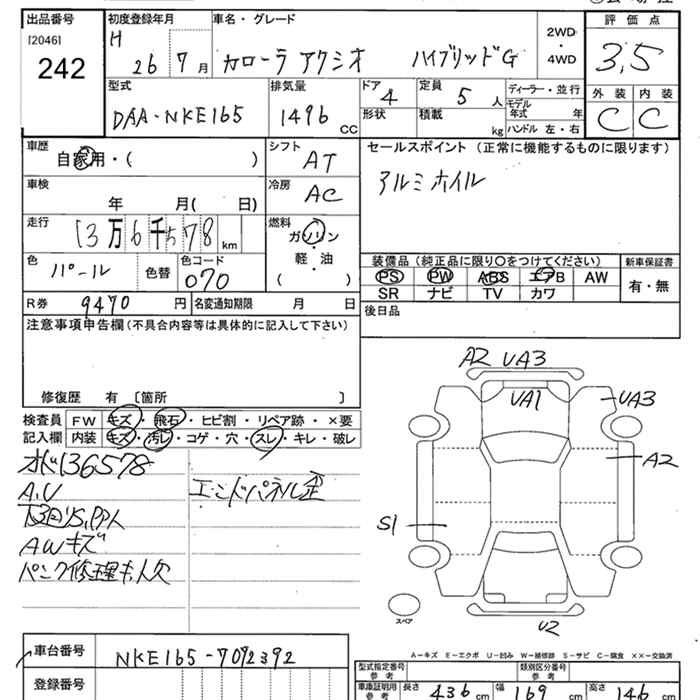 出品番号 初度登録年月 車名・グレード 評価点
[2046] H 2WD
242 26 7月 カローラ アクシオ ハイブリッドG ・ 3,5
4WD
型式 排気量 ドア 定員 ディーラー・並行 外装 内装
DAA-NKE165 1496 CC 4 5 人 モデル年式 年 C C
形状 積載 kg ハンドル 左・右
車歴 シフト セールスポイント (正常に機能するものに限ります)
自家用・( ) AT アルミホイル
車検 冷房
年 月( 日) AC
走行 燃料
13万6千578 km ガソリン
・
軽・油
( )
色 色替 色コード 装備品 (純正品に限り○をつけてください) 新車保証書
パール 070 PS PW ABS エアB AW 有・無
SR ナビ TV カワ
R券 9470 円 名変通知期限 月 日 後日品
注意事項申告欄 (不具合内容等は具体的に記入して下さい)
修復歴 有 [箇所 ]
検査員 FW キズ・飛石・ヒビ割・リペア跡・×要
記入欄 内装 キズ・汚レ・コゲ・穴・スレ・キレ・破レ
オド136578
A,U エンドパネル歪
AWキズ
パンク修理キ,欠
A2 UA3
UA1
UA3
A2
S1
U2
スペア
A-キズ E-エクボ U-凹み W-補修跡 S-サビ C-腐食 ××-交換済
車台番号 NKE165-7092392
型式指定番号 類別区分番号
参考 参考
登録番号 車庫証明用 参考 長さ 436 cm 幅 169 cm 高さ 146 cm